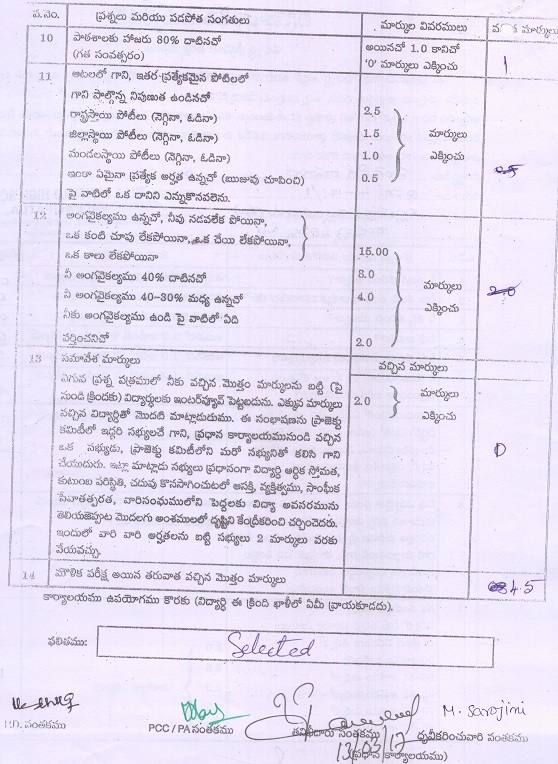 ప.సం. ప్రశ్నలు మరియు పడపోత సంగతులు మార్కుల వివరములు మార్కులు
10 పాఠశాలకు హాజరు 80% దాటినచో అయినచో 1.0 కానిచో
(గత సంవత్సరం) '0' మార్కులు ఎక్కించు 1
11 ఆటలలో గాని, ఇతర ప్రత్యేకమైన పోటిలలో
గాని పాల్గొన్న నిపుణుత ఉండినచో
రాష్ట్రస్థాయి పోటీలు (నెగ్గినా, ఓడినా) 2.5
జిల్లాస్థాయి పోటీలు (నెగ్గినా, ఓడినా) 1.5 మార్కులు
మండలస్థాయి పోటీలు (నెగ్గినా, ఓడినా) 1.0 ఎక్కించు
ఇంకా ఏమైనా ప్రత్యేక అర్హత ఉన్నచో (ఋజువు చూపించి) 0.5
పై వాటిలో ఒక దానిని ఎన్నుకొనవలెను.
12 అంగవైకల్యము ఉన్నచో, నీవు నడవలేక పోయినా,
ఒక కంటి చూపు లేకపోయినా, ఒక చేయి లేకపోయినా,
ఒక కాలు లేకపోయినా 15.00
నీ అంగవైకల్యము 40% దాటినచో 8.0 మార్కులు
నీ అంగవైకల్యము 40-30% మధ్య ఉన్నచో 4.0 ఎక్కించు
నీకు అంగవైకల్యము ఉండి పై వాటిలో ఏది
వర్తించనిచో 2.0
13 సమావేశ మార్కులు వచ్చిన మార్కులు
ఎగువ ప్రశ్న పత్రములో నీకు వచ్చిన మొత్తం మార్కులను బట్టి (పై
సుండి క్రిందకు) విద్యార్థులకు ఇంటర్వ్యూవ్ పెట్టబడును. ఎక్కువ మార్కులు 2.0 మార్కులు
వచ్చిన విద్యార్థితో మొదటి మాట్లాడుదుము. ఈ సంభాషణను ప్రాజెక్టు ఎక్కించు
కమిటీలో ఇద్దరి సభ్యులచే గాని, ప్రధాన కార్యాలయమునుండి వచ్చిన
ఒక సభ్యుడు, ప్రాజెక్టు కమిటీలోని మరో సభ్యునితో కలిసి గాని 0
చేయుదురు. ఇట్లా మాట్లాడు సభ్యులు ప్రధానంగా విద్యార్థి ఆర్థిక స్తోమత,
కుటుంబ పరిస్థితి, చదువు కొనసాగించుటలో ఆసక్తి, వ్యక్తిత్వము, సాంఘీక
సేవాతత్పరత, వారిసంఘములోని పెద్దలకు విద్యా అవసరమును
తెలియజెప్పుట మొదలగు అంశములలో దృష్టిని కేంద్రీకరించి చర్చించెదరు.
ఇందులో వారి వారి అర్హతలను బట్టి సభ్యులు 2 మార్కులు వరకు
వేయవచ్చు.
14 మౌలిక పరీక్ష అయిన తరువాత వచ్చిన మొత్తం మార్కులు 4.5
కార్యాలయము ఉపయోగము కొరకు (విద్యార్థి ఈ క్రింది ఖాళీలో ఏమీ వ్రాయకూడదు).
ఫలితము: Selected
M. Sarojini
P.D. సంతకము PCC / PA సంతకము తనిఖీదారు సంతకము ధృవీకరించువారి సంతకము
(ప్రధాన కార్యాలయం)